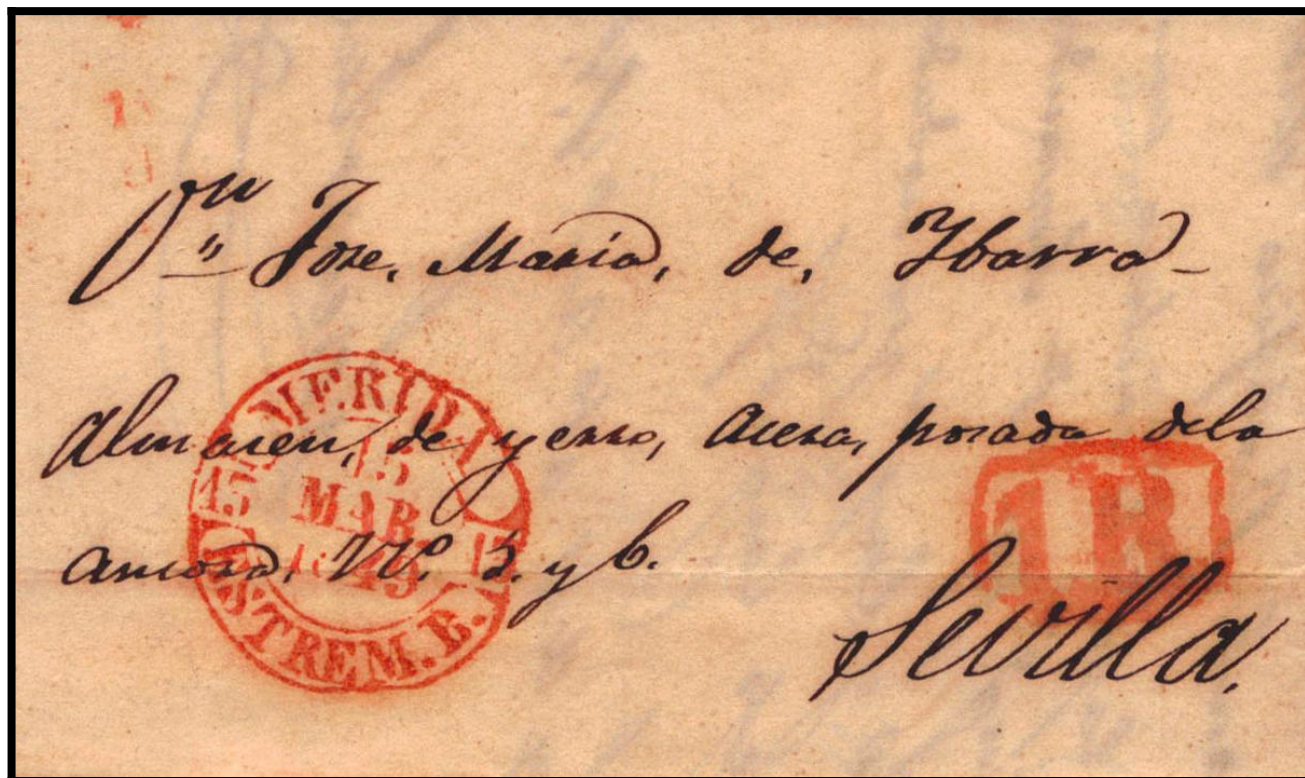 Dn Jose, Maria, de, Ybarra
Almacen, de yerro, Acera, posada dela
Ancora, Nº. 5. y 6.
Sevilla.
MERIDA
15
MAR
1849
15
ESTREM.B.
1R